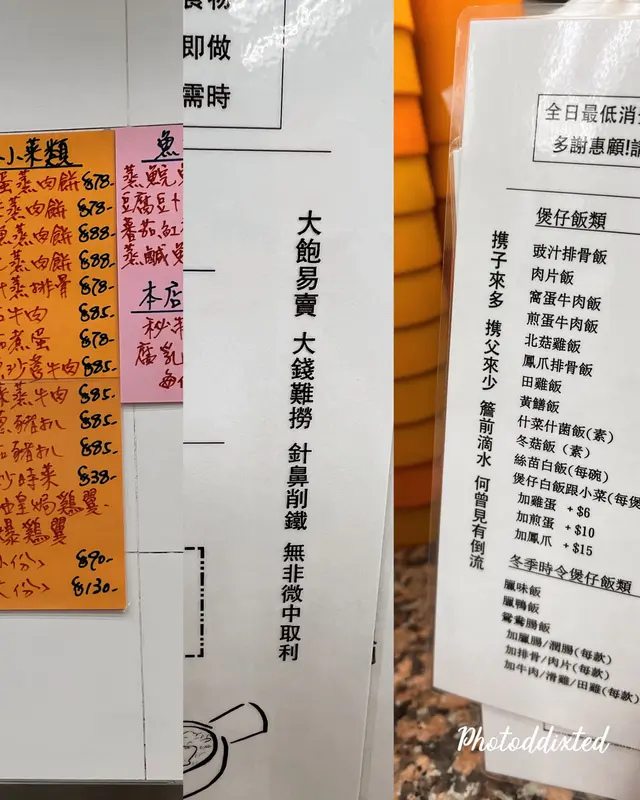 小菜類
蛋蒸肉餅 $78-
蒸肉餅 $78-
蒸肉餅 $88-
蒸肉餅 $88-
蒸排骨 $78-
牛肉 $85-
煮蛋 $78-
牛肉 $85-
蒸牛肉 $85-
豬扒 $85-
豬扒 $85-
炒時菜 $38-
焗鷄翼
鷄翼
$90-
$130-
魚
蒸鯇
豆腐豆
蕃茄紅
蒸鹹魚
本店
秘
腐乳
每
食物
即做
需時
大飽易賣 大錢難撈 針鼻削鐵 無非微中取利
全日最低消
多謝惠顧!
煲仔飯類
豉汁排骨飯
肉片飯
窩蛋牛肉飯
煎蛋牛肉飯
北菇雞飯
鳳爪排骨飯
田雞飯
黃鱔飯
什菜什菌飯(素)
冬菇飯(素)
絲苗白飯(每碗)
煲仔白飯跟小菜(每煲
加雞蛋 +$6
加煎蛋 +$10
加鳳爪 +$15
冬季時令煲仔飯類
臘味飯
臘鴨飯
鴛鴦腸飯
加臘腸/潤腸(每款)
加排骨/肉片(每款)
加牛肉/滑雞/田雞(每款)
携子來多 携父來少 簷前滴水 何曾見有倒流
Photoddixted